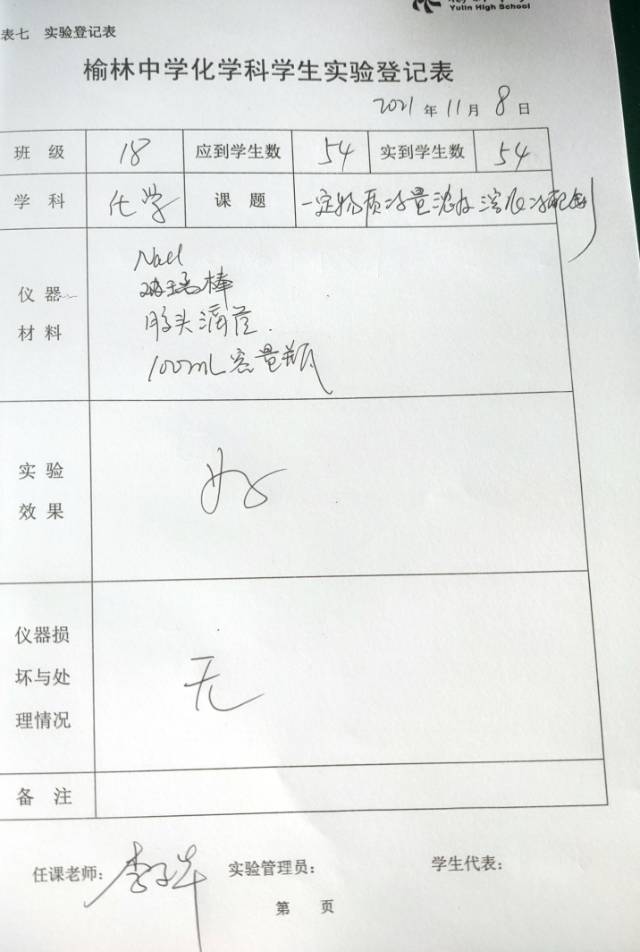 Yulin High School
表七 实验登记表
榆林中学化学科学生实验登记表
2021 年 11 月 8 日
班 级 18 应到学生数 54 实到学生数 54
学 科 化学 课 题 一定物质的量浓度溶液的配制
仪 器
材 料
NaCl
玻璃棒
胶头滴管.
100mL容量瓶
实 验
效 果
好
仪器损
坏与处
理情况
无
备 注
任课老师: 实验管理员: 学生代表:
第 页